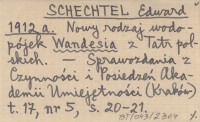 SCHECHTEL Edward
1912 a. Nowy rodzaj wodo-
pójek Wandesia z Tatr pol-
skich. — Sprawozdania z
Czynności i Posiedzeń Aka-
demii Umiejętności (Kraków)
t. 17, nr 5, s. 20-21.